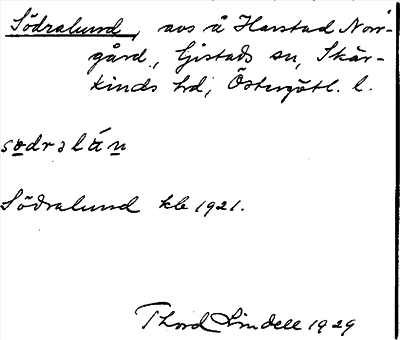 Södralund, avs å Harstad Norr-
gård, Gistads sn, Skär-
kinds hrd, Östergötl. l.
sodrəlán
Södralund kb 1921.
Thord Lindell 1929